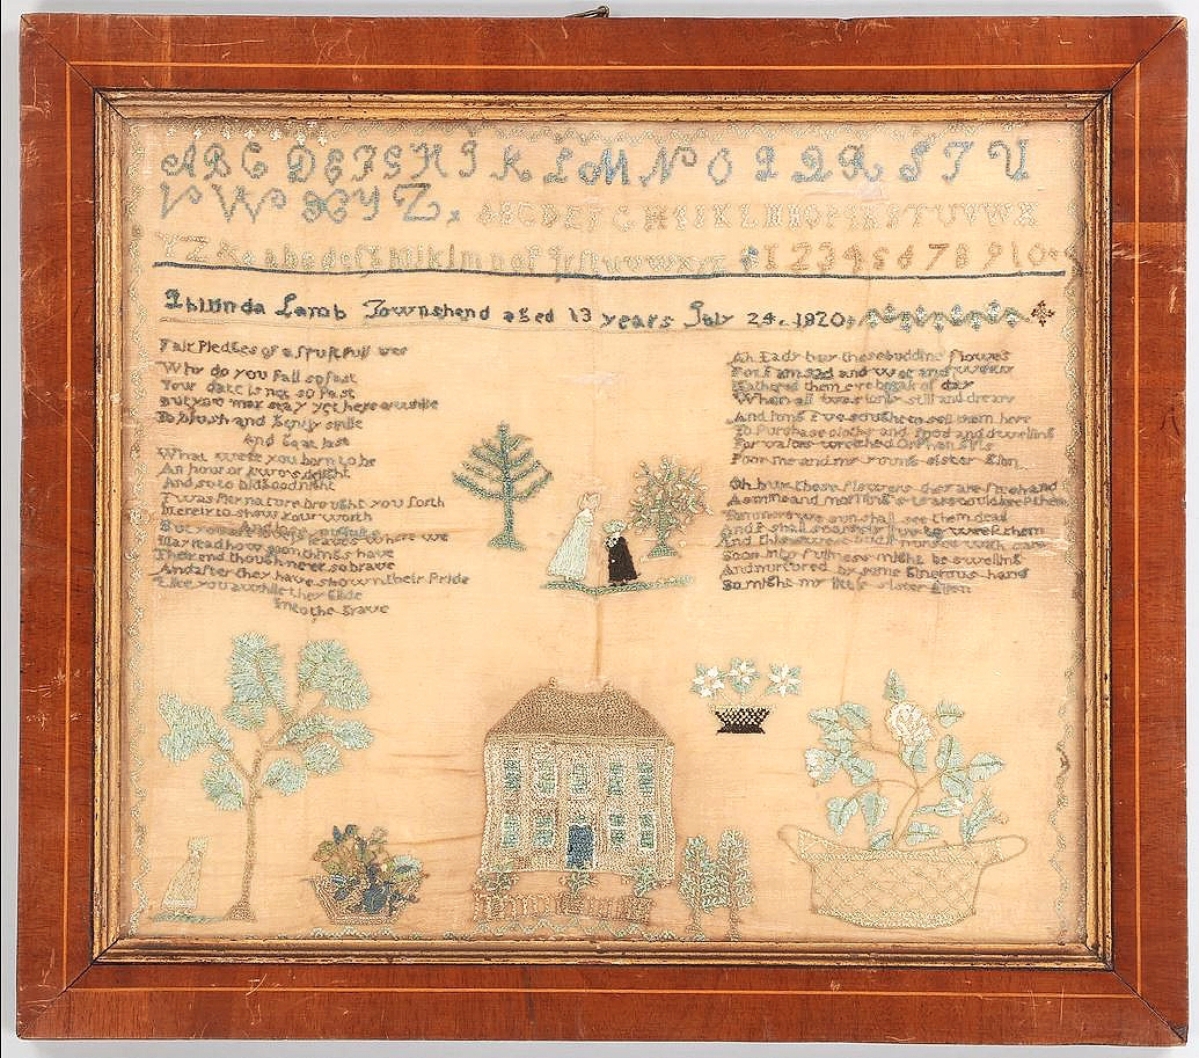 A B C D E F G H I K L M N O P Q R S T U
V W X Y Z
A B C D E F G H I J K L M N O P R S T U V W X
Y Z & a b c d e f g h i k l m n o p q r s t u v w x y z 1 2 3 4 5 6 7 8 9 10
Lamb Townshend aged 13 years July 24. 1820
Fair Pledges of a fruitfull tree
Why do you fall so fast
Your date is not so Past
But you may stay yet here awhile
To blush and gently smile
And go at last
What were you born to be
An hour or two's delight
And so to bid Good night
Twas Pity nature brought you forth
Merely to show your worth
But you are lovely leaves where we
May read how soon things have
Their end though never so brave
And after they have shown their Pride
Like you awhile they Glide
Into the Grave
Ah Lady buy these budding flowers
For I am sad and wet and weary
I gathered them ere break of day
When all was lonly still and dreary
And long I've sought to sell them here
To Purchase cloths and food and dwelling
For valors wretched Orphan Girls
Poor me and my young sister Ellen
Oh buy these flowers they are fresh and
Tommorrow's sun shall see them dead
And I shall scarcely weep them
And
Soon into fullness might be swelling
And nurtured by some Generous hand
So might my little sister Ellen